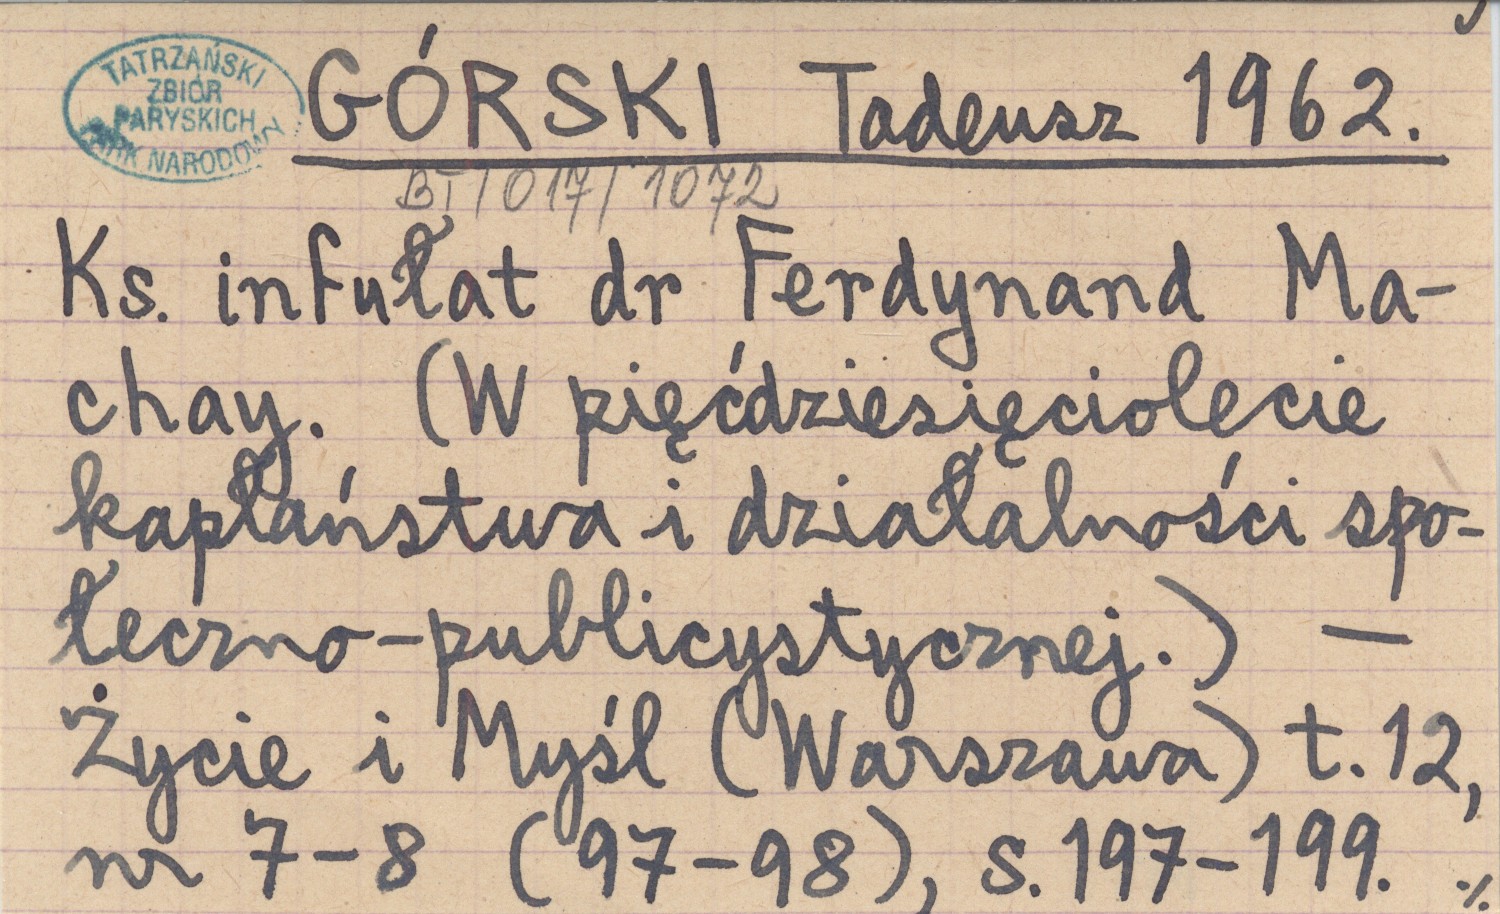 TATRZAŃSKI
ZBIÓR
PARYSKICH
PARK NARODOWY
GÓRSKI Tadeusz 1962.
BT/017/1072
Ks. infułat dr Ferdynand Ma-
chay. (W pięćdziesięciolecie
kapłaństwa i działalności spo-
łeczno-publicystycznej.) —
Życie i Myśl (Warszawa) t. 12,
nr 7-8 (97-98), s. 197-199. ·/.